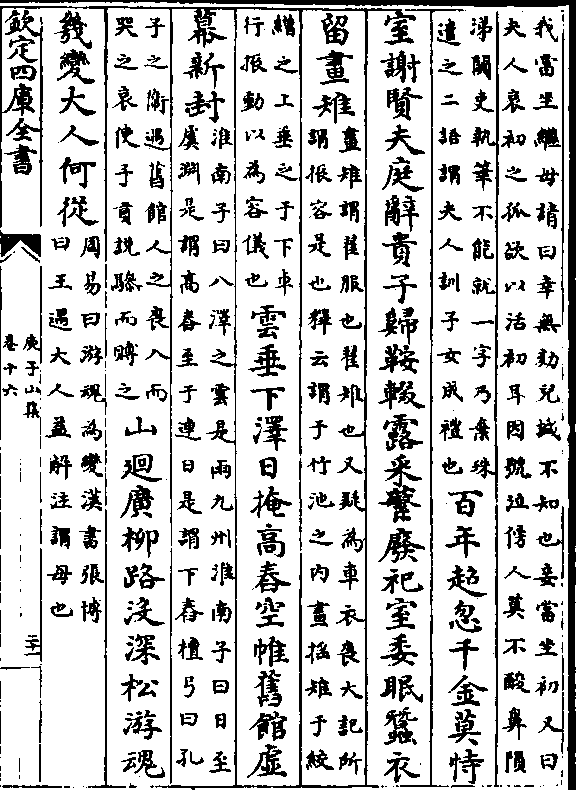 我當坐繼母請曰幸無劾兒誠不知也妾當坐初又曰
夫人哀初之孤欲以活初耳因號泣傍人莫不酸鼻隕
涕關吏執筆不能就一字乃棄珠
遣之二語謂夫人訓子女成禮也百年超忽千金莫恃
室謝賢夫庭辭貴子歸鞍輟露采蘩廢祀室委眠蠶衣
留畫雉畫雉謂翟服也翟雉也又疑為車衣喪大記所
謂振容是也釋云謂于竹池之内畫揺雉于絞
繒之上垂之于下車
行振動以為容儀也雲垂下澤日掩高舂空帷舊館虛
幕新封淮南子曰八澤之雲是雨九州淮南子曰日至
虞淵是謂高舂至于連日是謂下舂檀弓曰孔
子之衛遇舊館人之喪入而
哭之哀使子貢説驂而賻之山廻廣柳路没深松游魂
㡬變大人何從周易曰游魂為變漢書張博
曰王遇大人益解注謂母也
欽定四庫全書
庾子山集
卷十六
二十